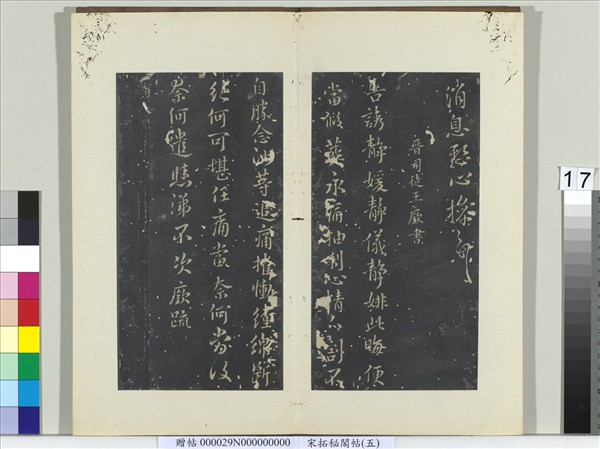 消息懸心操耶
晉司徒王廞書
吾誘靜媛靜儀靜姚此晦便
當假葬永痛抽剝心情分割不
自勝念汝等追痛摧慟纏綿斷
絕何可堪任痛當奈何當復
奈何遣悉涕不次廞疏
17
贈帖 000029N000000000 宋拓秘閣帖(五)